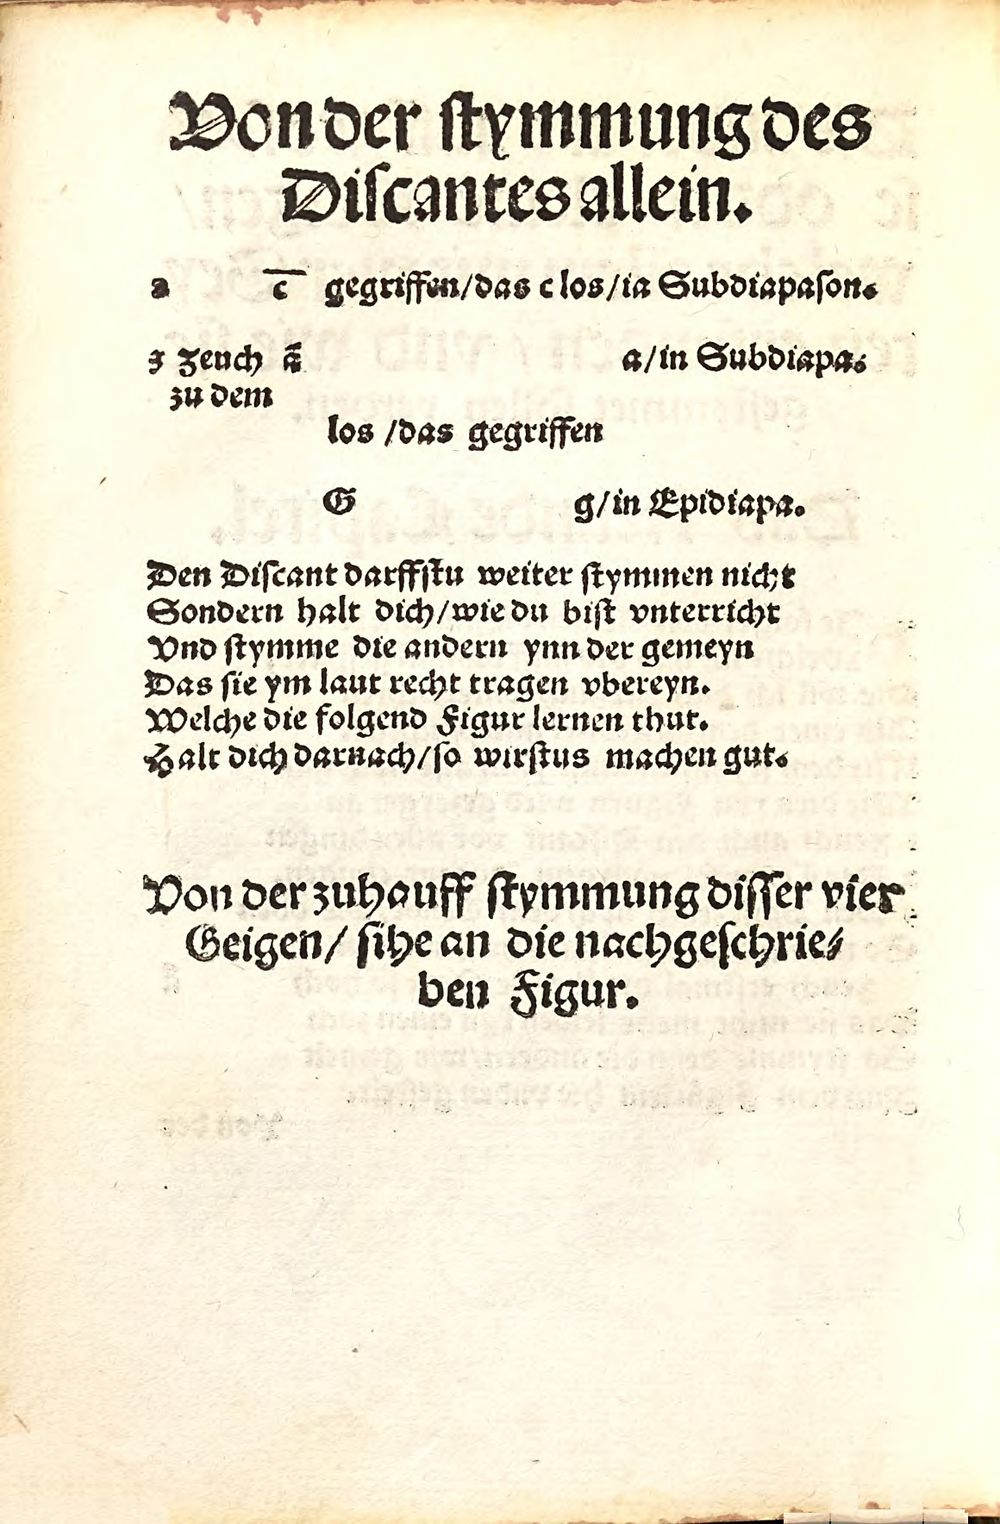 Von der stymmung des
Discantes allein.
2 c̅ gegriffen/das c los/ia Subdiapason.
3 zeuch ā a/in Subdiapa.
zu dem
los /das gegriffen
G g/in Epidiapa.
Den Discant darffstu weiter stymmen nicht
Sondern halt dich/wie du bist vnterricht
Vnd stymme die andern ynn der gemeyn
Das sie ym laut recht tragen vbereyn.
Welche die folgend Figur lernen thut.
Halt dich darnach/so wirstus machen gut.
Von der zuhauff stymmung disser vier
Geigen/ sihe an die nachgeschrie⸗
ben Figur.